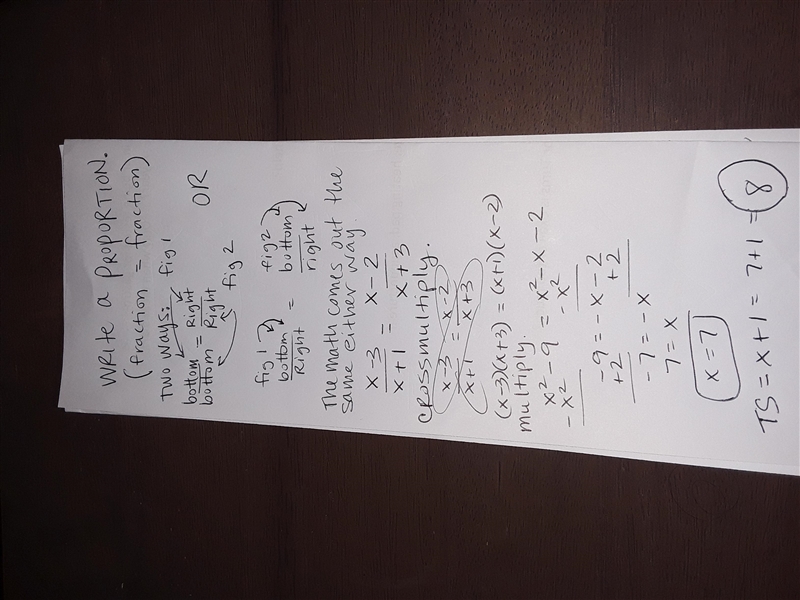 WRITE a PROPORTION.
(fraction = fraction)
TWO ways:
bottom/bottom = Right/Right fig 1 fig 2
OR
fig 1 fig 2
bottom/Right = bottom/right
The math comes out the
same either way.
x-3/x+1 = x-2/x+3
Cross multiply.
x-3/x+1 = x-2/x+3
(x-3)(x+3) = (x+1)(x-2)
multiply.
x² - 9 = x² - x - 2
-x² -x²
-9 = -x - 2
+2 +2
-7 = -x
7 = x
x = 7
TS = x + 1 = 7 + 1 = 8